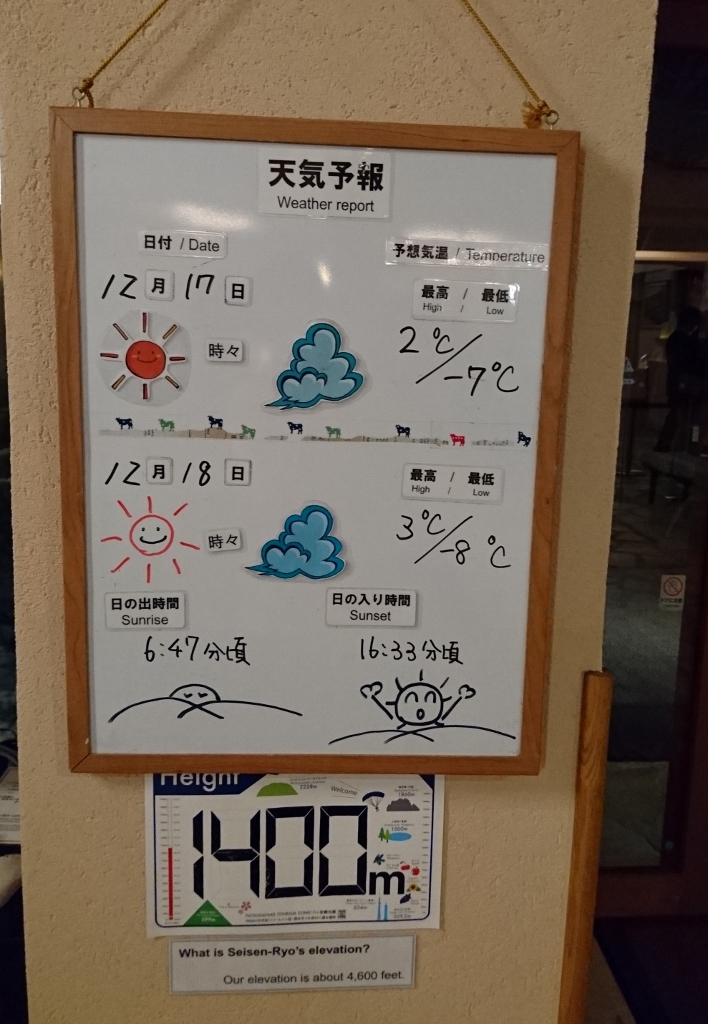 天気予報
Weather report
日付 / Date
予想気温 / Temperature
12月 17日
最高 / 最低
High / Low
時々
2℃/-7℃
12月 18日
最高 / 最低
High / Low
時々
3℃/-8℃
日の出時間
Sunrise
日の入り時間
Sunset
6:47分頃
16:33分頃
Height
Welcome
1400m
What is Seisen-Ryo's elevation?
Our elevation is about 4,600 feet.